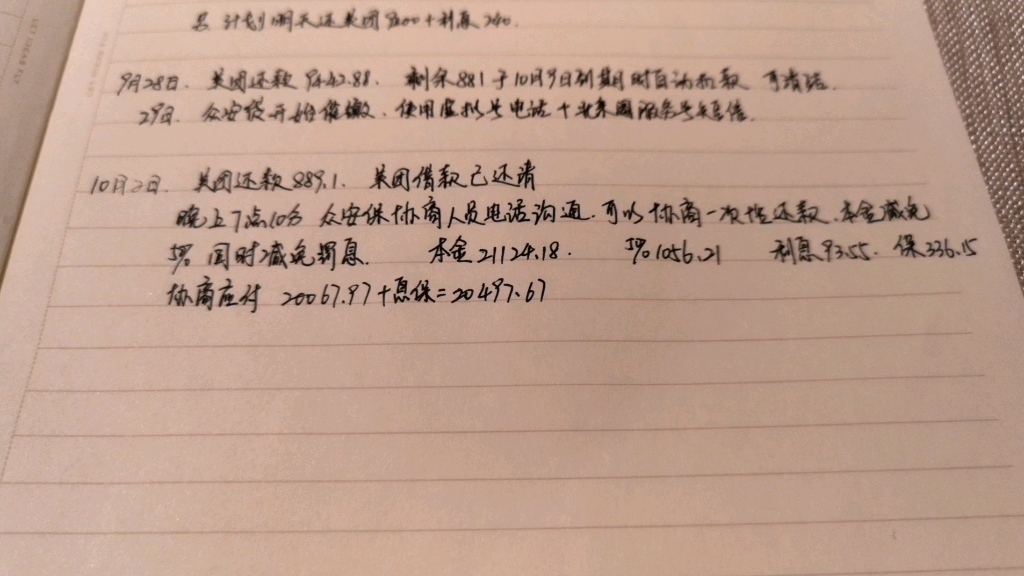 计划明天还美团9200+利息240.
9月28日. 美团还款9442.88. 剩余881于10月9日到期时自动扣款 可清结.
29日. 众安贷开始催缴. 使用虚拟号电话+北京国际服务号短信.
10月2日. 美团还款889.1. 美团借款已还清
晚上7点10分 众安保协商人员电话沟通. 可以协商一次性还款. 本金减免
5% 同时减免罚息. 本金21124.18. 5%1056.21 利息93.55. 保336.15
协商应付 20067.97+息保=20497.67